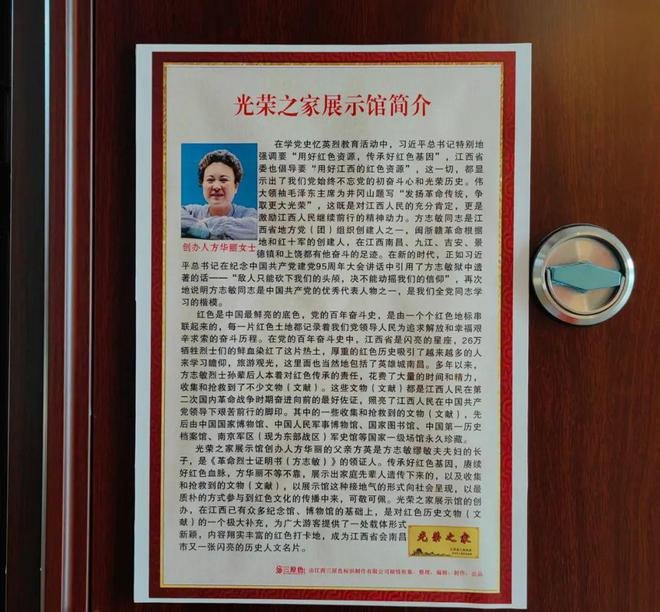 光荣之家展示馆简介
在学党史忆英烈教育活动中，习近平总书记特别地
强调要“用好红色资源，传承好红色基因”，江西省
委也倡导要“用好江西的红色资源”，这一切，都显
示出了我们党始终不忘党的初奋斗心和光荣历史。伟
大领袖毛泽东主席为井冈山题写“发扬革命传统，争
取更大光荣”，这既是对江西人民的充分肯定，更是
激励江西人民继续前行的精神动力。方志敏同志是江
西省地方党（团）组织创建人之一，闽浙赣革命根据
地和红十军的创建人，在江西南昌、九江、吉安、景
创办人方华丽女士
德镇和上饶都有他奋斗的足迹。在新的时代，正如习近
平总书记在纪念中国共产党建党95周年大会讲话中引用了方志敏狱中遗
著的话——“敌人只能砍下我们的头颅，决不能动摇我们的信仰”，再次
地说明方志敏同志是中国共产党的优秀代表人物之一，是我们全党同志学
习的楷模。
红色是中国最鲜亮的底色，党的百年奋斗史，是由一个个红色地标串
联起来的，每一片红色土地都记录着我们党领导人民为追求解放和幸福艰
辛求索的奋斗历程。在党的百年奋斗史中，江西省是闪亮的星座，26万
牺牲烈士们的鲜血染红了这片热土，厚重的红色历史吸引了越来越多的人
来学习瞻仰，旅游观光，这里面也当然地包括了英雄城南昌。多年以来，
方志敏烈士孙辈后人本着对红色传承的责任，花费了大量的时间和精力，
收集和抢救到了不少文物（文献）。这些文物（文献）都是江西人民在第
二次国内革命战争时期奋进向前的最好佐证，照亮了江西人民在中国共产
党领导下艰苦前行的脚印。其中的一些收集和抢救到的文物（文献），先
后由中国国家博物馆、中国人民军事博物馆、国家图书馆、中国第一历史
档案馆、南京军区（现为东部战区）军史馆等国家一级场馆永久珍藏。
光荣之家展示馆创办人方华丽的父亲方英是方志敏缪敏夫夫妇的长
子，是《革命烈士证明书（方志敏）》的领证人。传承好红色基因，赓续
好红色血脉，方华丽不等不靠，展示出家庭先辈人遗传下来的，以及收集
和抢救到的文物（文献），以展示馆这种接地气的形式向社会呈现，以最
质朴的方式参与到红色文化的传播中来，可敬可佩。光荣之家展示馆的创
办，在江西已有众多纪念馆、博物馆的基础上，是对红色历史文物（文
献）的一个极大补充，为广大游客提供了一处载体形式
新颖，内容翔实丰富的红色打卡地，成为江西省会南昌
市又一张闪亮的历史人文名片。
光荣之家
三原色